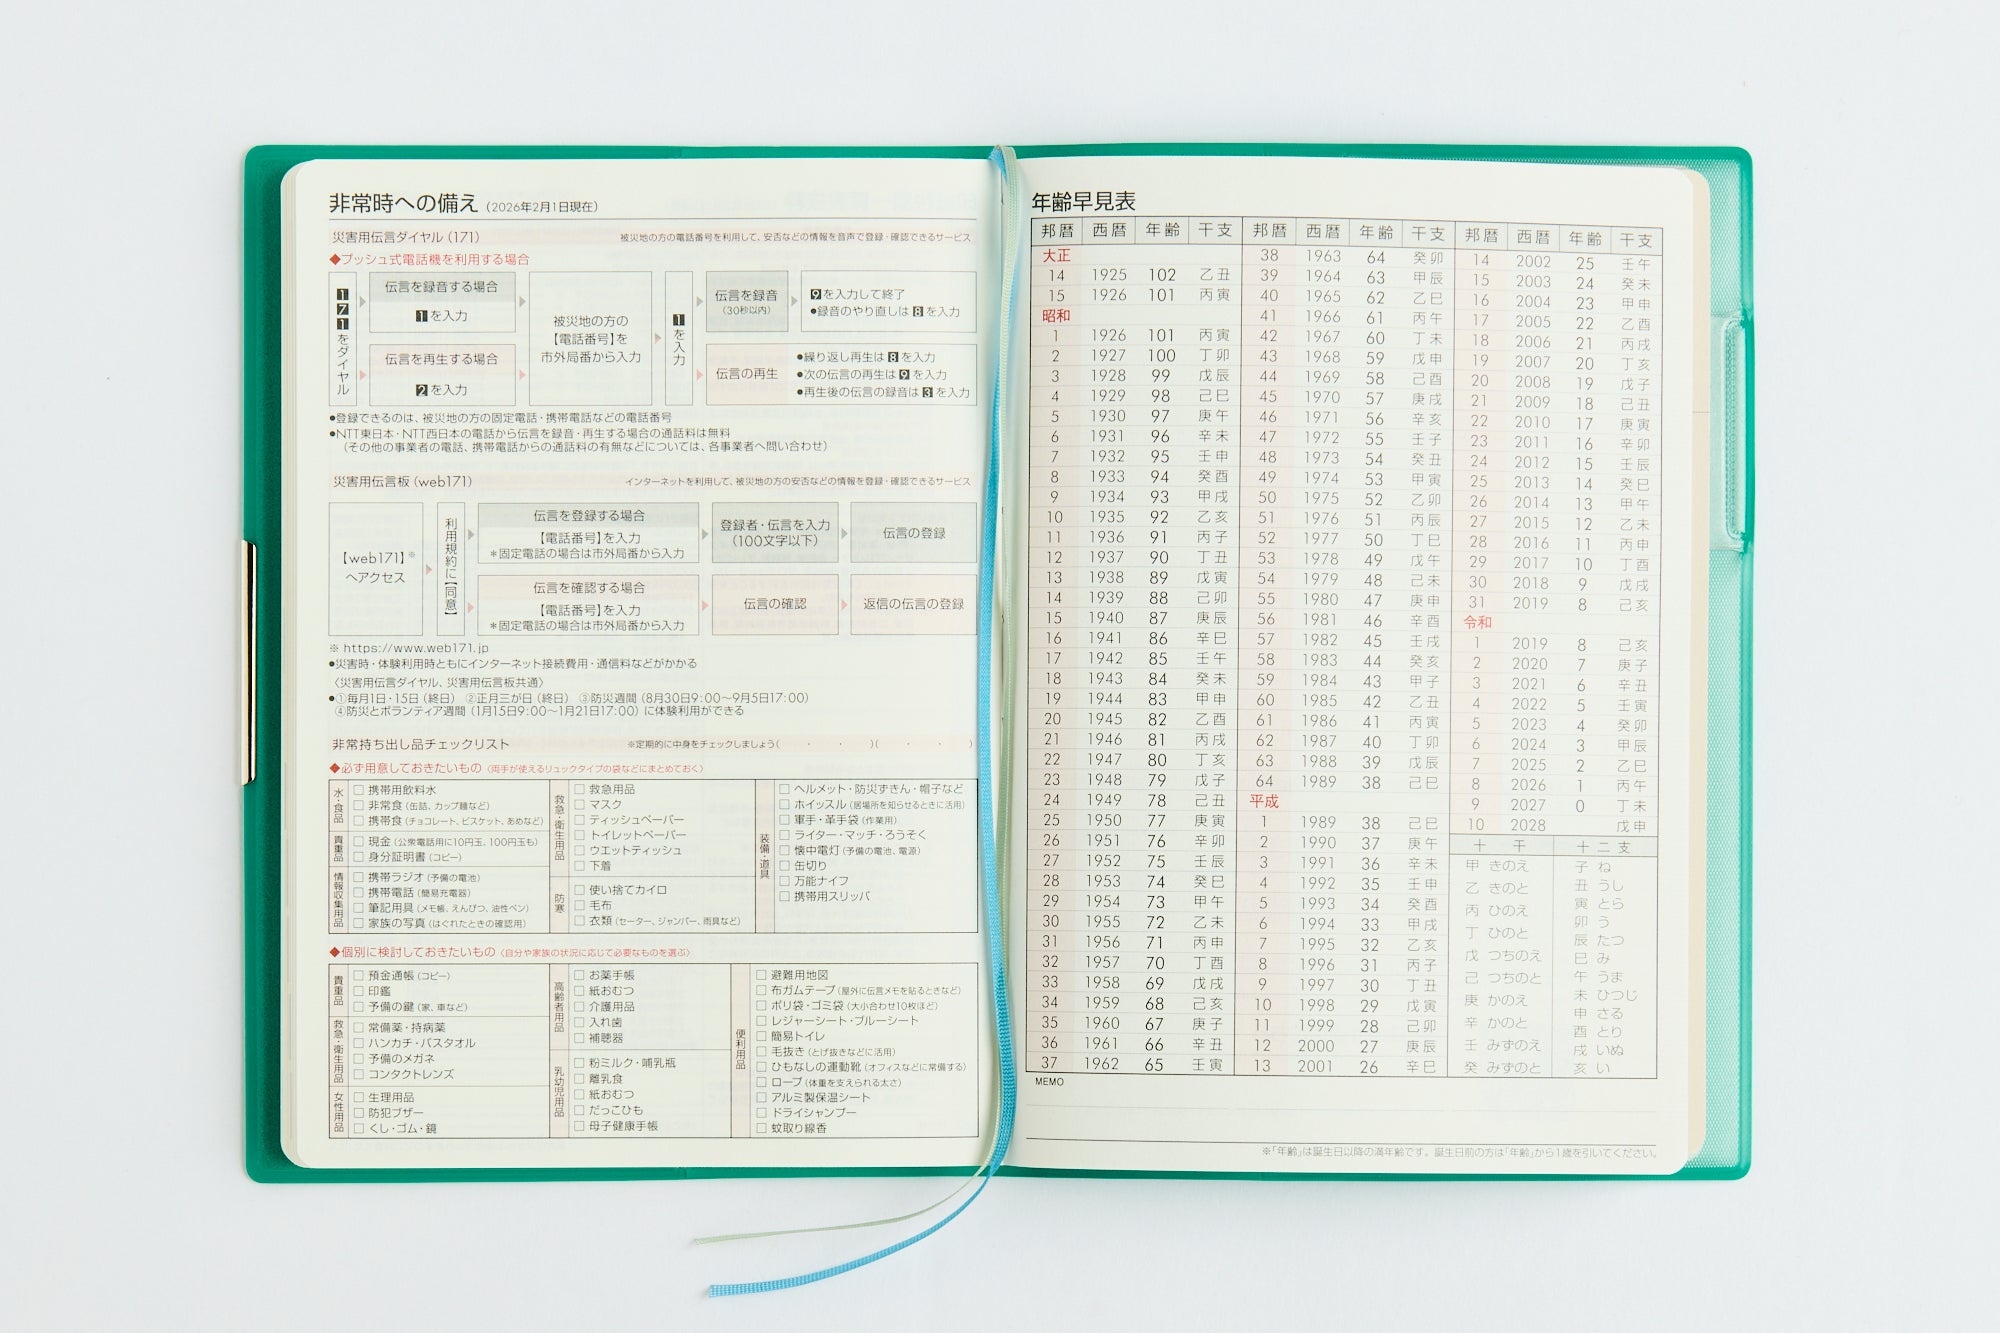 非常時への備え（2026年2月1日現在）
災害用伝言ダイヤル（171）
被災地の方の電話番号を利用して、安否などの情報を音声で登録・確認できるサービス
◆プッシュ式電話機を利用する場合
171をダイヤル
伝言を録音する場合
1を入力
伝言を再生する場合
2を入力
被災地の方の
【電話番号】を
市外局番から入力
1を入力
伝言を録音
（30秒以内）
9を入力して終了
●録音のやり直しは8を入力
伝言の再生
●繰り返し再生は8を入力
●次の伝言の再生は9を入力
●再生後の伝言の録音は3を入力
●登録できるのは、被災地の方の固定電話・携帯電話などの電話番号
●NTT東日本・NTT西日本の電話から伝言を録音・再生する場合の通話料は無料
（その他の事業者の電話、携帯電話からの通話料の有無などについては、各事業者へ問い合わせ）
災害用伝言板（web171）
インターネットを利用して、被災地の方の安否などの情報を登録・確認できるサービス
【web171】※
へアクセス
利用規約に【同意】
伝言を登録する場合
【電話番号】を入力
＊固定電話の場合は市外局番から入力
登録者・伝言を入力
（100文字以下）
伝言の登録
伝言を確認する場合
【電話番号】を入力
＊固定電話の場合は市外局番から入力
伝言の確認
返信の伝言の登録
※ https://www.web171.jp
●災害時・体験利用時ともにインターネット接続費用・通信料などがかかる
〈災害用伝言ダイヤル、災害用伝言板共通〉
●①毎月1日・15日（終日） ②正月三が日（終日） ③防災週間（8月30日9:00～9月5日17:00）
④防災とボランティア週間（1月15日9:00～1月21日17:00）に体験利用ができる
非常持ち出し品チェックリスト
※定期的に中身をチェックしましょう（ ・ ・ ）（ ・ ・ ）
◆必ず用意しておきたいもの（両手が使えるリュックタイプの袋などにまとめておく）
水・食品
□ 携帯用飲料水
□ 非常食（缶詰、カップ麺など）
□ 携帯食（チョコレート、ビスケット、あめなど）
貴重品
□ 現金（公衆電話用に10円玉、100円玉も）
□ 身分証明書（コピー）
情報収集用品
□ 携帯ラジオ（予備の電池）
□ 携帯電話（簡易充電器）
□ 筆記用具（メモ帳、えんぴつ、油性ペン）
□ 家族の写真（はぐれたときの確認用）
救急・衛生用品
□ 救急用品
□ マスク
□ ティッシュペーパー
□ トイレットペーパー
□ ウエットティッシュ
□ 下着
防寒
□ 使い捨てカイロ
□ 毛布
□ 衣類（セーター、ジャンパー、雨具など）
装備・道具
□ ヘルメット・防災ずきん・帽子など
□ ホイッスル（居場所を知らせるときに活用）
□ 軍手・革手袋（作業用）
□ ライター・マッチ・ろうそく
□ 懐中電灯（予備の電池、電源）
□ 缶切り
□ 万能ナイフ
□ 携帯用スリッパ
◆個別に検討しておきたいもの（自分や家族の状況に応じて必要なものを選ぶ）
貴重品
□ 預金通帳（コピー）
□ 印鑑
□ 予備の鍵（家、車など）
救急・衛生用品
□ 常備薬・持病薬
□ ハンカチ・バスタオル
□ 予備のメガネ
□ コンタクトレンズ
女性用品
□ 生理用品
□ 防犯ブザー
□ くし・ゴム・鏡
高齢者用品
□ お薬手帳
□ 紙おむつ
□ 介護用品
□ 入れ歯
□ 補聴器
乳幼児用品
□ 粉ミルク・哺乳瓶
□ 離乳食
□ 紙おむつ
□ だっこひも
□ 母子健康手帳
便利用品
□ 避難用地図
□ 布ガムテープ（屋外に伝言メモを貼るときなど）
□ ポリ袋・ゴミ袋（大小合わせ10枚ほど）
□ レジャーシート・ブルーシート
□ 簡易トイレ
□ 毛抜き（とげ抜きなどに活用）
□ ひもなしの運動靴（オフィスなどに常備する）
□ ロープ（体重を支えられる太さ）
□ アルミ製保温シート
□ ドライシャンプー
□ 蚊取り線香
年齢早見表
邦暦 西暦 年齢 干支
大正
14 1925 102 乙丑
15 1926 101 丙寅
昭和
1 1926 101 丙寅
2 1927 100 丁卯
3 1928 99 戊辰
4 1929 98 己巳
5 1930 97 庚午
6 1931 96 辛未
7 1932 95 壬申
8 1933 94 癸酉
9 1934 93 甲戌
10 1935 92 乙亥
11 1936 91 丙子
12 1937 90 丁丑
13 1938 89 戊寅
14 1939 88 己卯
15 1940 87 庚辰
16 1941 86 辛巳
17 1942 85 壬午
18 1943 84 癸未
19 1944 83 甲申
20 1945 82 乙酉
21 1946 81 丙戌
22 1947 80 丁亥
23 1948 79 戊子
24 1949 78 己丑
25 1950 77 庚寅
26 1951 76 辛卯
27 1952 75 壬辰
28 1953 74 癸巳
29 1954 73 甲午
30 1955 72 乙未
31 1956 71 丙申
32 1957 70 丁酉
33 1958 69 戊戌
34 1959 68 己亥
35 1960 67 庚子
36 1961 66 辛丑
37 1962 65 壬寅
邦暦 西暦 年齢 干支
38 1963 64 癸卯
39 1964 63 甲辰
40 1965 62 乙巳
41 1966 61 丙午
42 1967 60 丁未
43 1968 59 戊申
44 1969 58 己酉
45 1970 57 庚戌
46 1971 56 辛亥
47 1972 55 壬子
48 1973 54 癸丑
49 1974 53 甲寅
50 1975 52 乙卯
51 1976 51 丙辰
52 1977 50 丁巳
53 1978 49 戊午
54 1979 48 己未
55 1980 47 庚申
56 1981 46 辛酉
57 1982 45 壬戌
58 1983 44 癸亥
59 1984 43 甲子
60 1985 42 乙丑
61 1986 41 丙寅
62 1987 40 丁卯
63 1988 39 戊辰
64 1989 38 己巳
平成
1 1989 38 己巳
2 1990 37 庚午
3 1991 36 辛未
4 1992 35 壬申
5 1993 34 癸酉
6 1994 33 甲戌
7 1995 32 乙亥
8 1996 31 丙子
9 1997 30 丁丑
10 1998 29 戊寅
11 1999 28 己卯
12 2000 27 庚辰
13 2001 26 辛巳
邦暦 西暦 年齢 干支
14 2002 25 壬午
15 2003 24 癸未
16 2004 23 甲申
17 2005 22 乙酉
18 2006 21 丙戌
19 2007 20 丁亥
20 2008 19 戊子
21 2009 18 己丑
22 2010 17 庚寅
23 2011 16 辛卯
24 2012 15 壬辰
25 2013 14 癸巳
26 2014 13 甲午
27 2015 12 乙未
28 2016 11 丙申
29 2017 10 丁酉
30 2018 9 戊戌
31 2019 8 己亥
令和
1 2019 8 己亥
2 2020 7 庚子
3 2021 6 辛丑
4 2022 5 壬寅
5 2023 4 癸卯
6 2024 3 甲辰
7 2025 2 乙巳
8 2026 1 丙午
9 2027 0 丁未
10 2028 戊申
十干
甲 きのえ
乙 きのと
丙 ひのえ
丁 ひのと
戊 つちのえ
己 つちのと
庚 かのえ
辛 かのと
壬 みずのえ
癸 みずのと
十二支
子 ね
丑 うし
寅 とら
卯 う
辰 たつ
巳 み
午 うま
未 ひつじ
申 さる
酉 とり
戌 いぬ
亥 い
MEMO
※「年齢」は誕生日以降の満年齢です。誕生日前の方は「年齢」から1歳を引いてください。